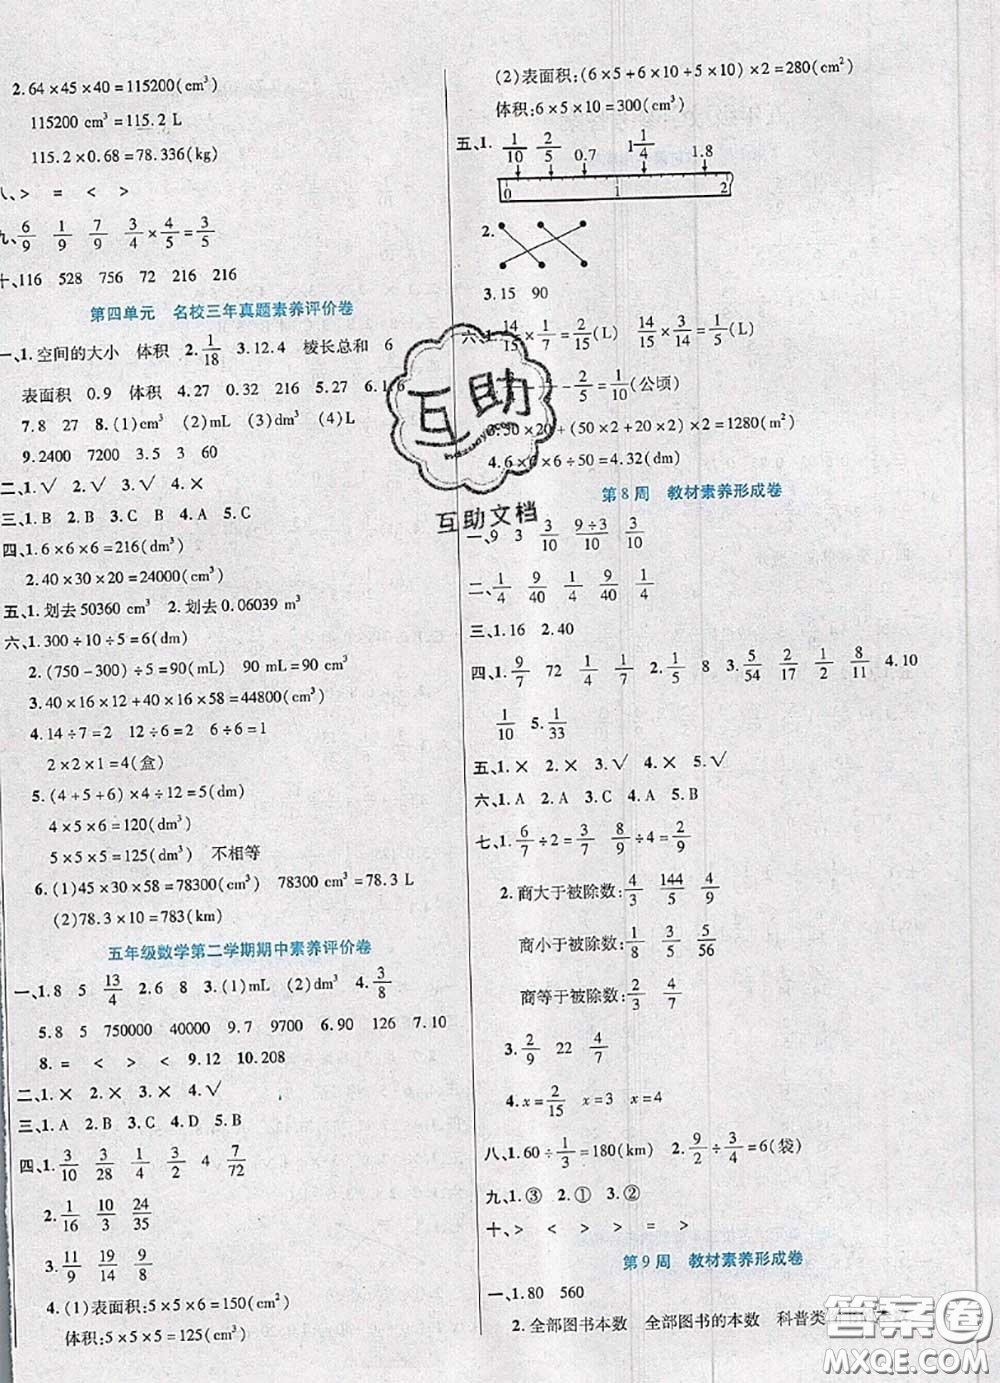 2.64×45×40=115200(cm³)
115200 cm³=115.2 L
115.2×0.68=78.336(kg)
八、> = < >
九、6/9 1/9 7/9 3/4×4/5=3/5
十、116 528 756 72 216 216
第四单元 名校三年真题素养评价卷
一、1.空间的大小 体积 2.1/18 3.12.4 棱长总和 6
表面积 0.9 体积 4.27 0.32 216 5.27 6.1.6
7.8 27 8.(1)cm³ (2)mL (3)cm³ (4)L
9.2400 7200 3.5 3 60
二、1.√ 2.√ 3.√ 4.× 5.×
三、1.B 2.B 3.C 4.A 5.C
四、1.6×6×6=216(dm³)
2.40×30×20=24000(cm³)
五、1.划去50360 cm³ 2.划去0.06039 m³
六、1.300÷10÷5=6(dm)
2.(750-300)÷5=90(mL) 90 mL=90 cm³
3.40×16×12+40×16×58=44800(cm³)
4.14÷7=2 12÷6=2 6÷6=1
2×2×1=4(盒)
5.(4+5+6)×4÷12=5(dm)
4×5×6=120(dm³)
5×5×5=125(dm³) 不相等
6.(1)45×30×58=78300(cm³) 78300 cm³=78.3 L
(2)78.3×10=783(km)
五年级数学第二学期期中素养评价卷
一、1.8 5 13/4 2.6 8 3.(1)mL (2)dm³ 4.3/8
5.8 5 750000 40000 9.7 9700 6.90 126 7.10
8.= < > < 9.12 10.208
二、1.× 2.× 3.× 4.√
三、1.A 2.B 3.C 4.D 5.B
四、1.3/10 3/28 1/4 3/2 4 7/72
2.1/16 10/3 24/35
3.11/9 19/12 9/8
4.(1)表面积:5×5×6=150(cm²)
体积:5×5×5=125(cm³)
(2)表面积:(6×5+6×10+5×10)×2=280(cm²)
体积:6×5×10=300(cm³)
五、1.1/10 2/5 0.7 1 1/4 1.8
0 1 2
2.
3.15 90
六、1.14/15×1/7=2/15(L) 14/15÷ =1/15(L)
-2/5=1/10(公顷)
3.50×20+(50×2+20×2)×2=1280(m²)
4.6×6×6÷50=4.32(dm)
第8周 教材素养形成卷
一、9 3 3/10 9÷3/10 3/10
二、1/4 9/40 1/4 9/40 1/4
三、1.16 2.40
四、1.9/7 72 1/4 1/7 2.1/5 8 3.5/54 2/17 1/2 8/11 4.10
1/10 5.1/33
五、1.× 2.× 3.√ 4.× 5.√
六、1.A 2.A 3.C 4.A 5.B
七、1.6/7÷2=3/7 8/9÷4=2/9
2.商大于被除数:4/3 144/5 4/9
商小于被除数:1/8 3/5 5/56
商等于被除数:2/3 4/7
3.2/9 22 4/7
4.x=2/15 x=3 x=4
八、1.60÷1/3=180(km) 2.9/2÷3/4=6(袋)
九、1.③ 2.① 3.②
十、> < > > = >
第9周 教材素养形成卷
一、1.80 560
2.全部图书本数 全部图书的本数 科普类
互助
互助文档
答案圈
MXQE.COM